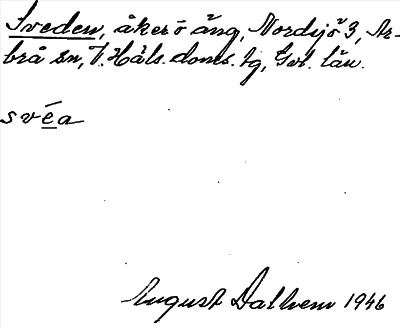 Sveden, åker o äng, Nordsjö 3, Ar-
brå sn, V. Häls. doms. lg, Gvl. län.
svéa
August Dalhem 1946